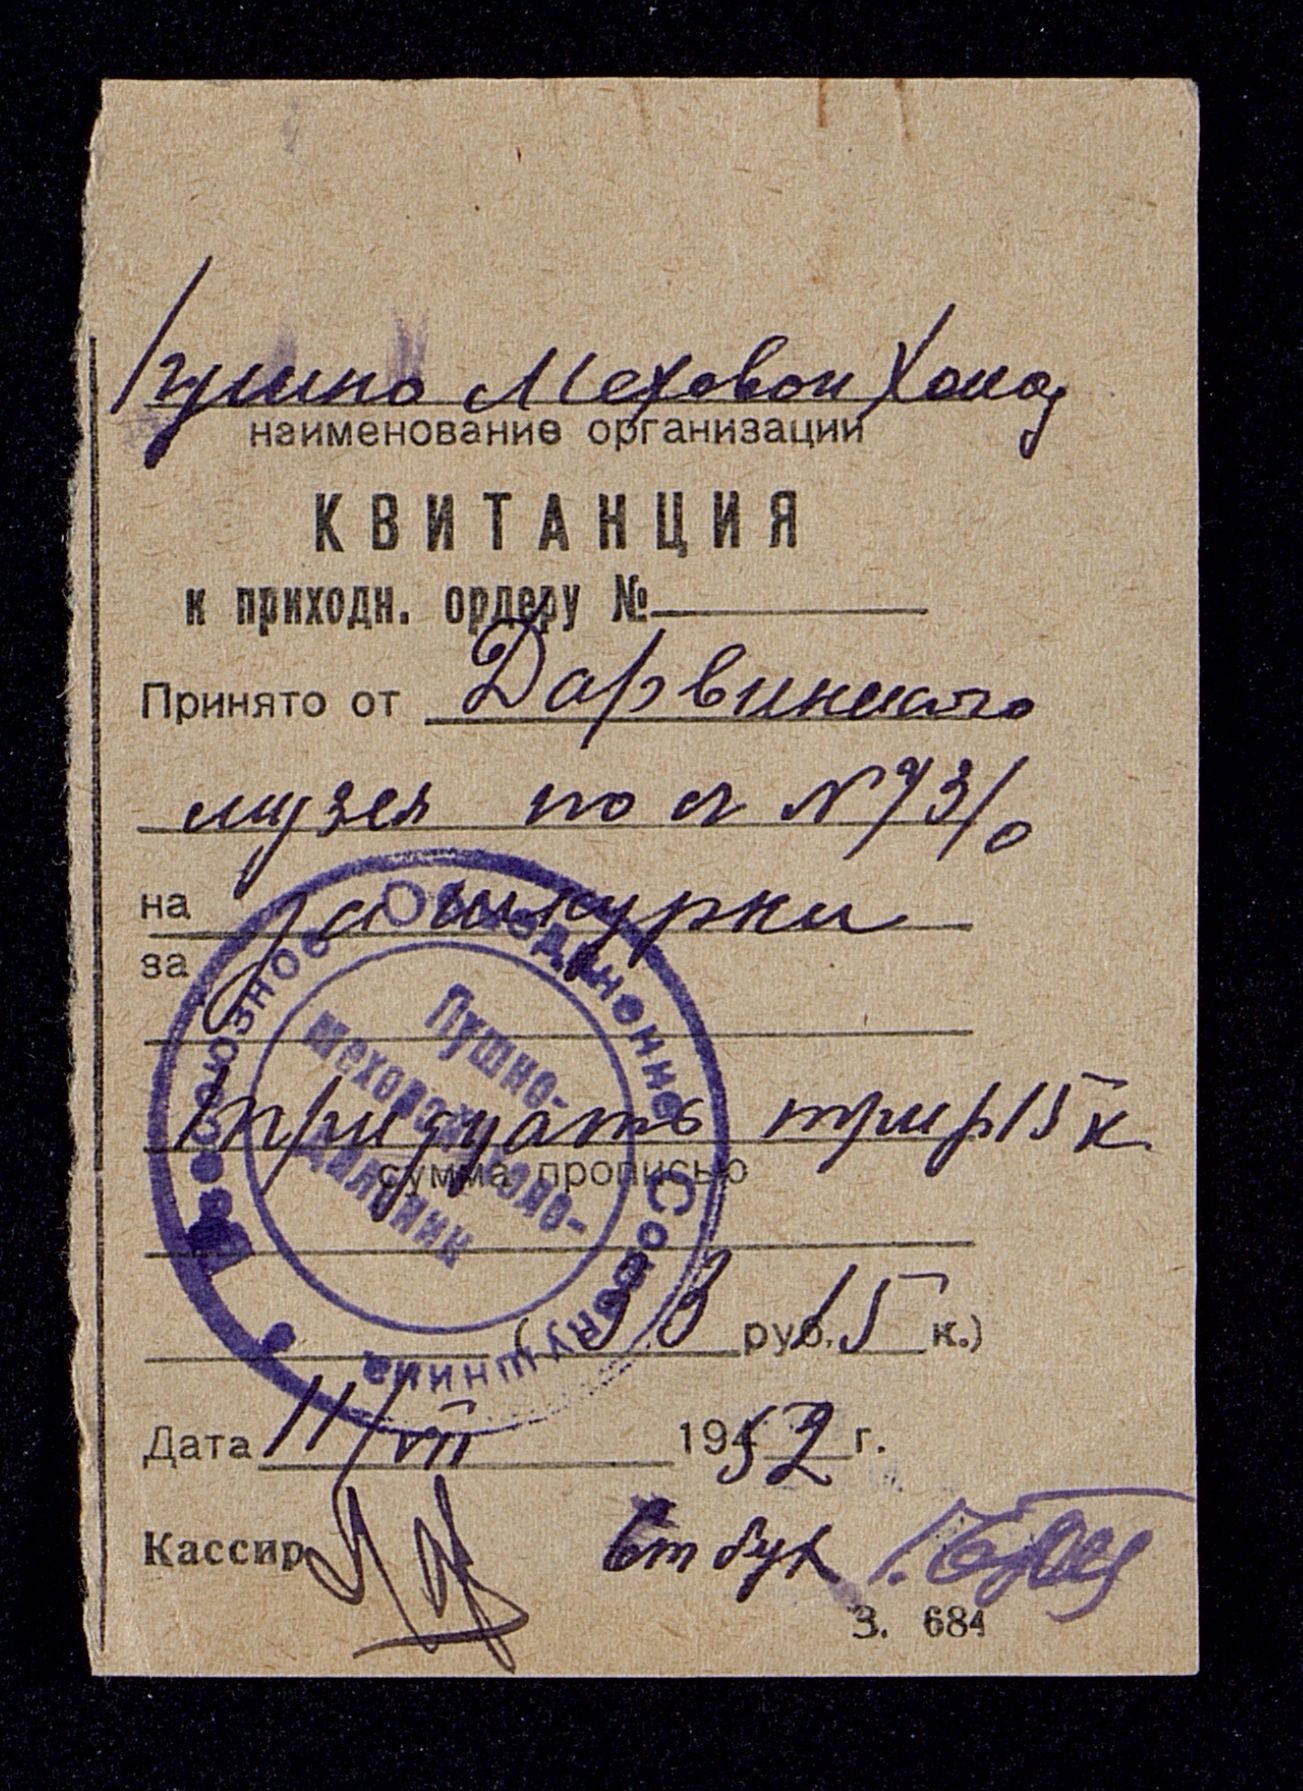 Пушно Меховой Холод
наименование организации
КВИТАНЦИЯ
к приходн. ордеру №
Принято от Дарвинского
музея по сч №
на за шкурки
за
Тридцать три р 15 к
сумма прописью
(33 руб. 15 к.)
Дата 11/VII 1952 г.
Кассир
Ст бух
З. 684
Всесоюзное Объединение Союзпушнина
Пушно-
меховой холо-
дильник